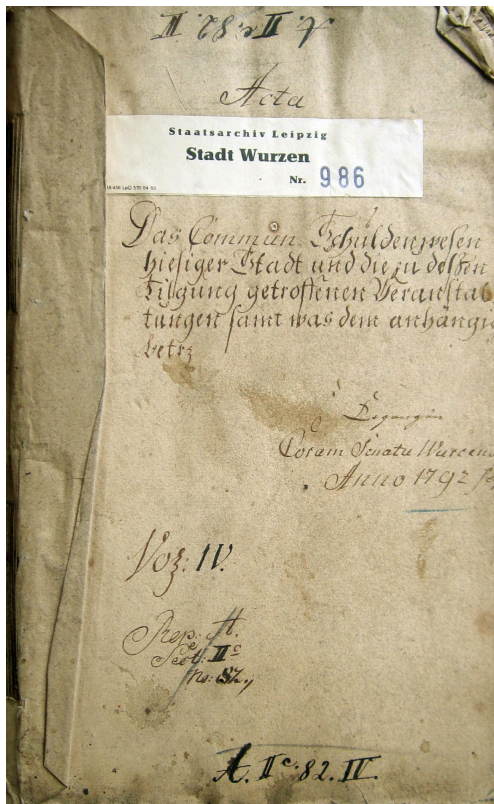 A. IIc. 82. IV
Acta
Staatsarchiv Leipzig
Stadt Wurzen
Nr. 986
Das Commun Schuldenwesen
hiesiger Stadt und die zu deßen
Tilgung getroffenen Veranstal
tungen samt was dem anhängig
betr:
Ergangen
Coram Senatu Wurcens
Anno 1792
Vol: IV.
Rep: A.
Sect: IIc
No: 82.
A. IIc. 82. IV.